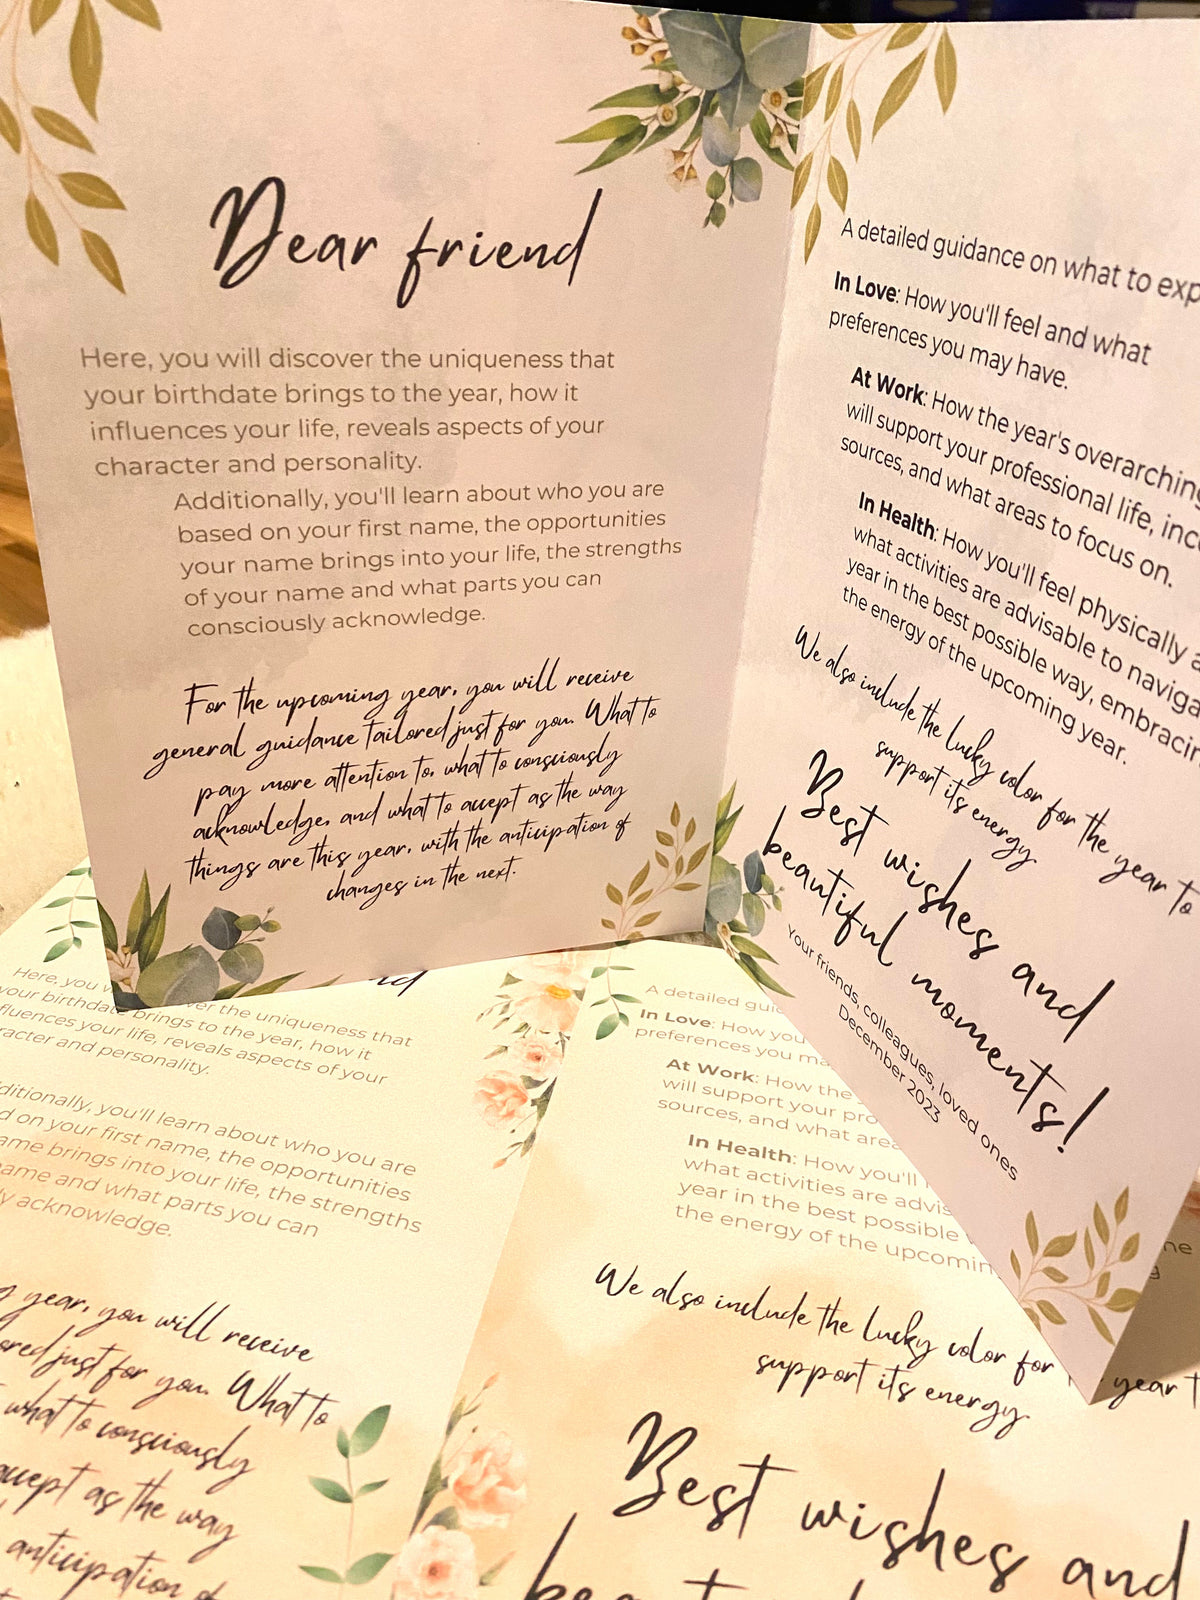 Dear friend
Here, you will discover the uniqueness that
your birthdate brings to the year, how it
influences your life, reveals aspects of your
character and personality.
Additionally, you'll learn about who you are
based on your first name, the opportunities
your name brings into your life, the strengths
of your name and what parts you can
consciously acknowledge.
For the upcoming year, you will receive
general guidance tailored just for you. What to
pay more attention to, what to consciously
acknowledge, and what to accept as the way
things are this year, with the anticipation of
changes in the next.
A detailed guidance on what to exp
In Love: How you'll feel and what
preferences you may have.
At Work: How the year's overarching
will support your professional life, inc
sources, and what areas to focus on.
In Health: How you'll feel physically a
what activities are advisable to naviga
year in the best possible way, embracin
the energy of the upcoming year.
We also include the lucky color for the year to
support its energy
Best wishes and
beautiful moments!
Your friends, colleagues, loved ones
December 2023
Here, you w ver the uniqueness that
your birthdate brings to the year, how it
fluences your life, reveals aspects of your
racter and personality.
ditionally, you'll learn about who you are
d on your first name, the opportunities
ame brings into your life, the strengths
ame and what parts you can
ly acknowledge.
g year, you will receive
ored just for you. What to
what to consciously
accept as the way
anticipation of
A detailed guid
In Love: How you
preferences you ma
At Work: How the
will support your pro
sources, and what area
In Health: How you'll
what activities are advis
year in the best possible
the energy of the upcomin
We also include the lucky color for year t
support its energy
Best wishes and